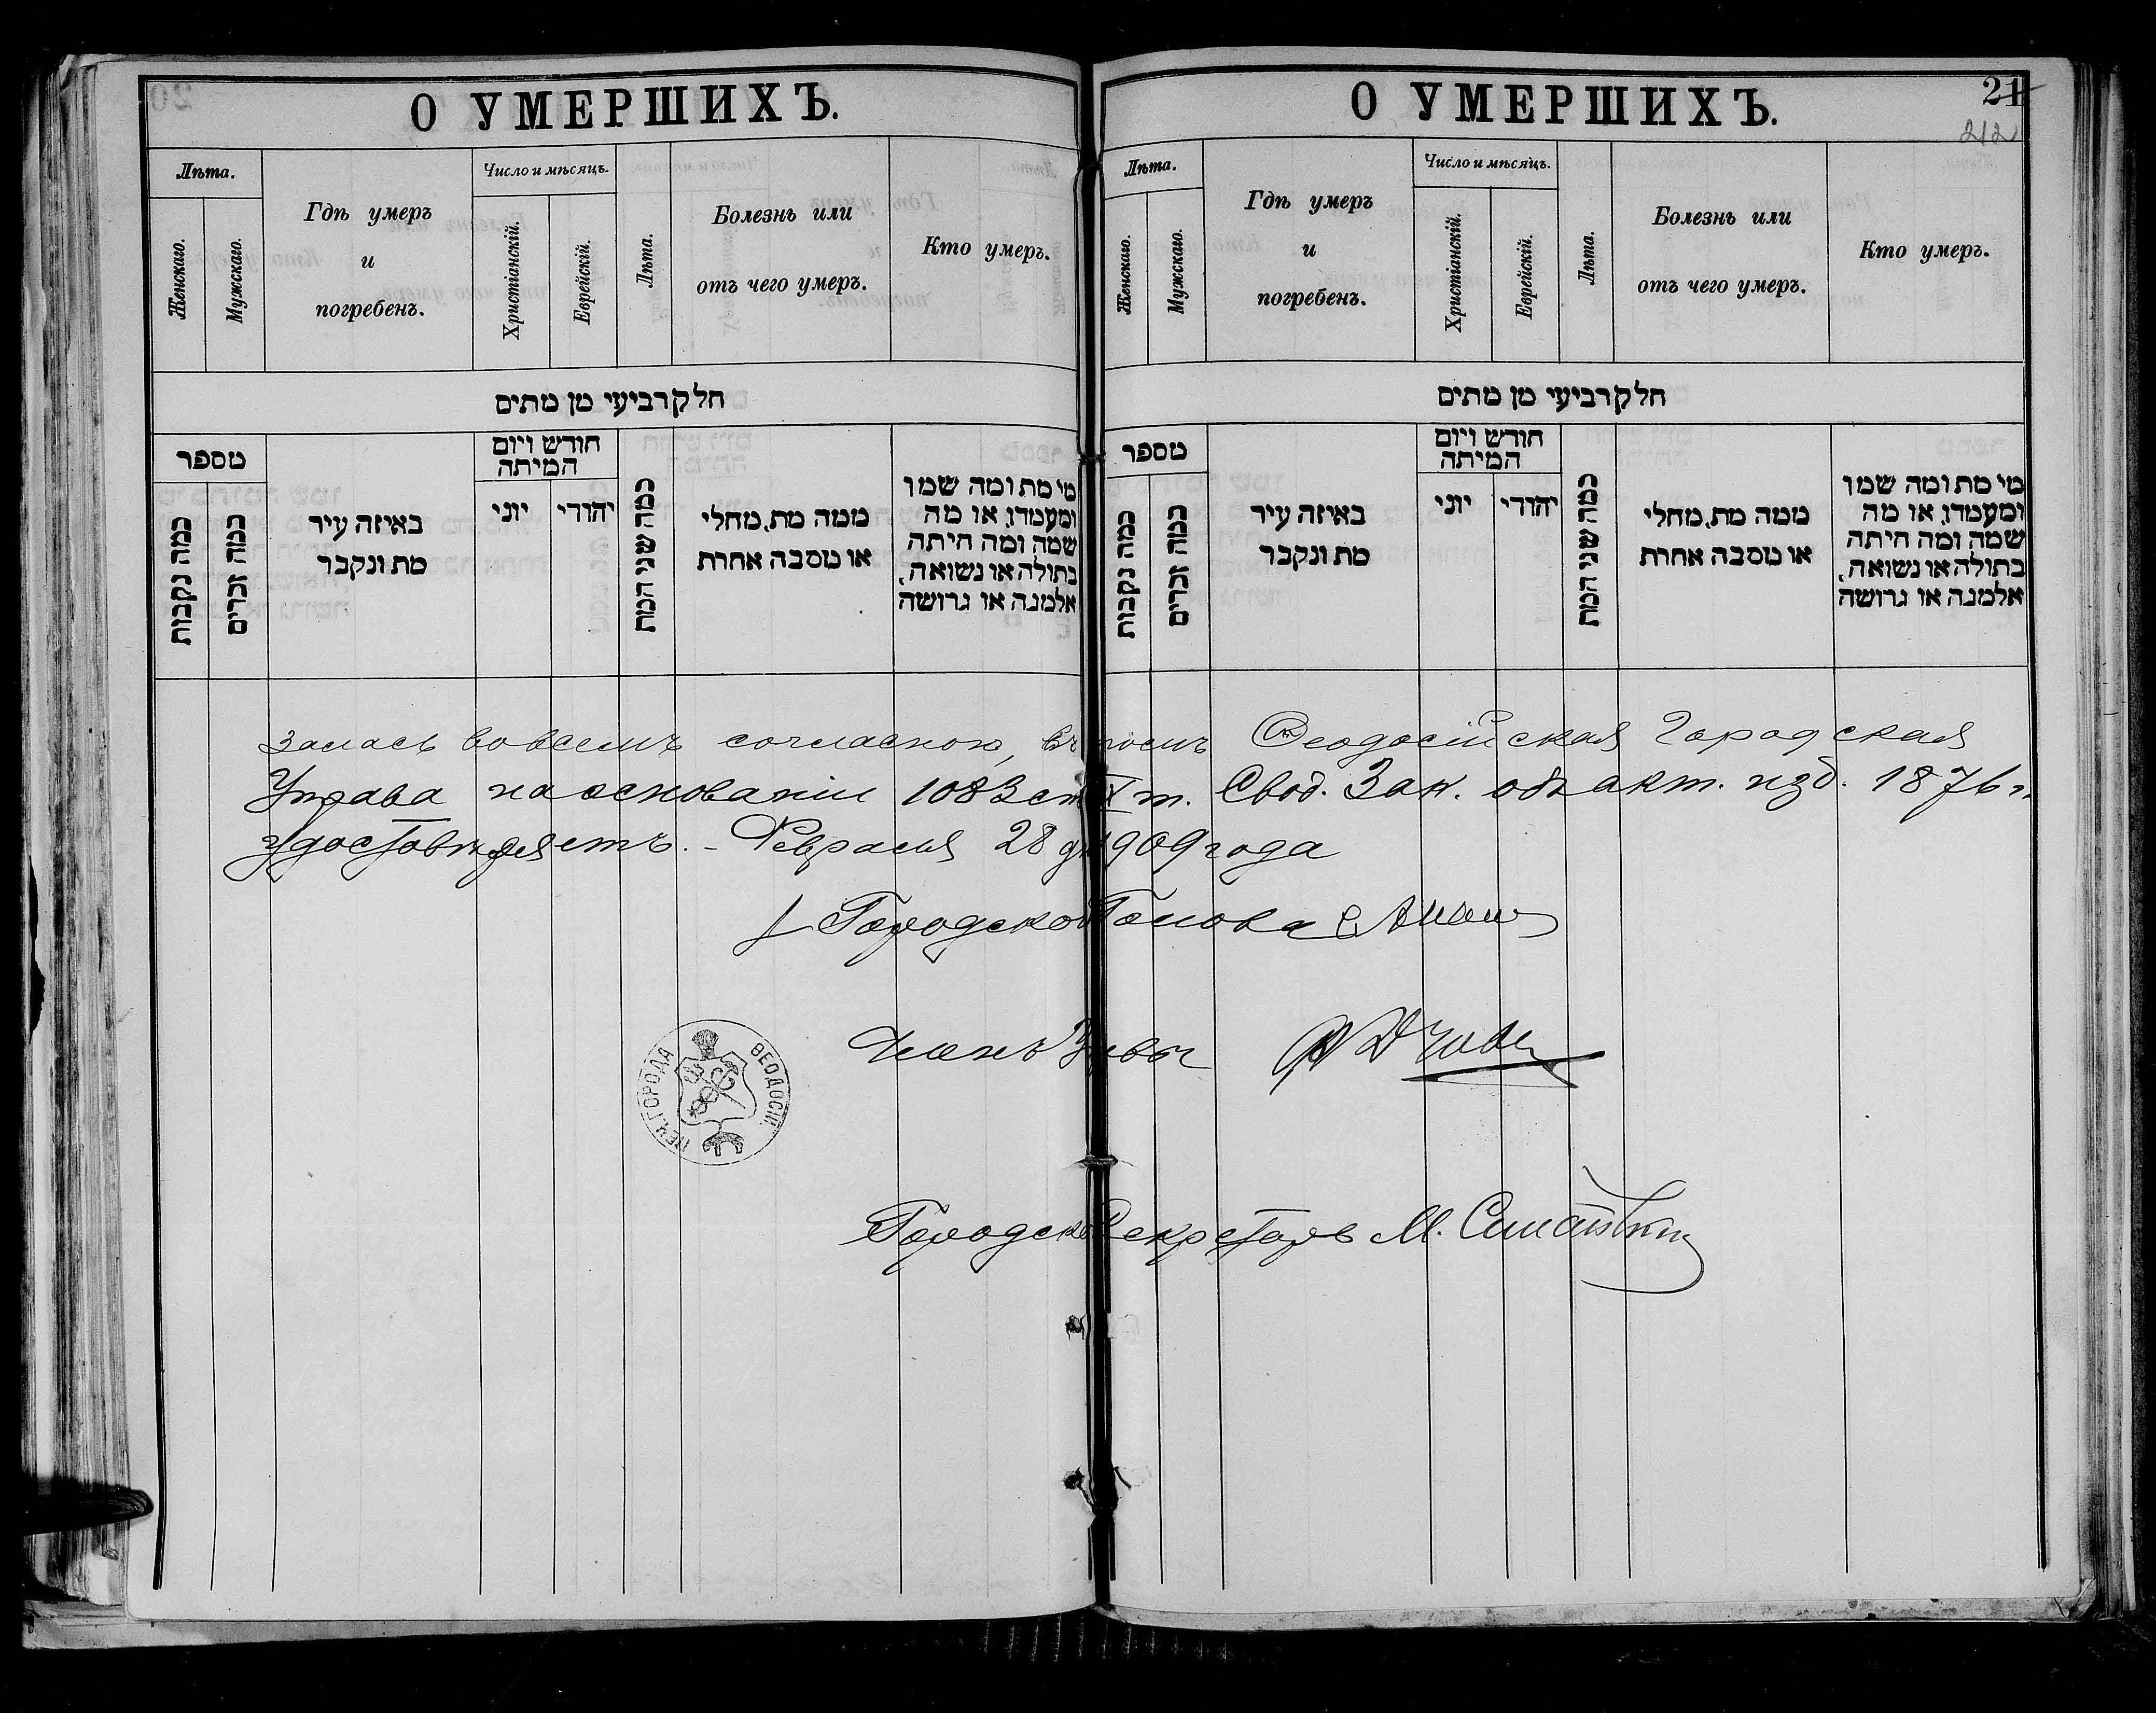 О УМЕРШИХЪ.
Лѣта.
Женскаго.
Мужскаго.
Гдѣ умеръ
и
погребенъ.
Число и мѣсяцъ.
Христіанскій.
Еврейскій.
Лѣта.
Болезнь или
отъ чего умеръ.
Кто умеръ.
חלק רביעי מן מתים
מספר
כמה נקבות
כמה זכרים
באיזה עיר
מת ונקבר
חודש ויום
המיתה
יוני
יהודי
כמה שני המת
ממה מת, מחלי
או מסבה אחרת
מי מת ומה שמו
ומעמדו, או מה
שמה ומה היתה
בתולה או נשואה,
אלמנה או גרושה
О УМЕРШИХЪ.
21
212
Лѣта.
Женскаго.
Мужскаго.
Гдѣ умеръ
и
погребенъ.
Число и мѣсяцъ.
Христіанскій.
Еврейскій.
Лѣта.
Болезнь или
отъ чего умеръ.
Кто умеръ.
חלק רביעי מן מתים
מספר
כמה נקבות
כמה זכרים
באיזה עיר
מת ונקבר
חודש ויום
המיתה
יוני
יהודי
כמה שני המת
ממה מת, מחלי
או מסבה אחרת
מי מת ומה שמו
ומעמדו, או מה
שמה ומה היתה
בתולה או נשואה,
אלמנה או גרושה
залась во всемъ согласною, въ томъ Ѳеодосійская Городская
Управа на основаніи 1083 ст. IX т. Свод. Зак. объ акт. изд. 1876 г.
удостовѣряетъ. - Февраля 28 д. 1909 года
Городской Голова
Членъ Управы
Городской Секретарь М.
ПЕЧ. ГОРОДА ѲЕОДОСІИ.